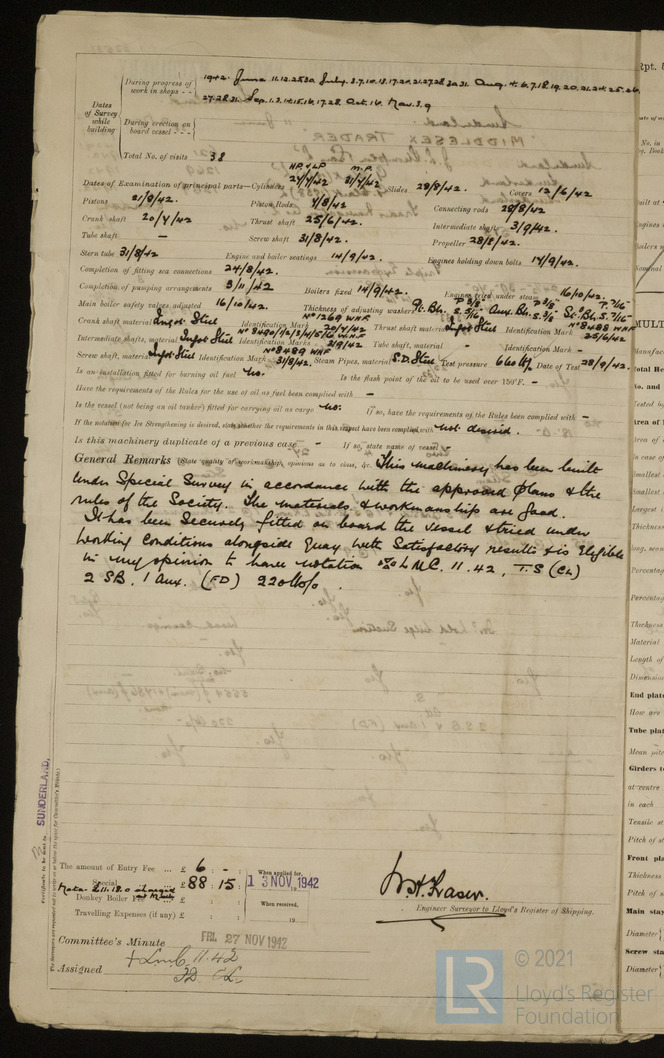 During progress of work in shops - - 1942. June 11.12.25.30 July. 3.7.10.13.17.20.21.27.28.30.31 Aug. 4.6.7.18.19.20.21.24.25.26
27.28.31. Sep. 1.3.14.15.16.17.28. Oct. 16. Nov. 3.9
Dates of Survey while building
During erection on board vessel - - -
Total No. of visits 38
H.P. & L.P. M.P.
Dates of Examination of principal parts—Cylinders 24/7/42 31/7/42 Slides 28/8/42. Covers 12/6/42
Pistons 21/8/42. Piston Rods 4/8/42 Connecting rods 28/8/42
Crank shaft 20/7/42 Thrust shaft 25/6/42. Intermediate shafts 3/9/42.
Tube shaft – Screw shaft 31/8/42. Propeller 28/8/42.
Stern tube 31/8/42 Engine and boiler seatings 14/9/42. Engines holding down bolts 17/9/42.
Completion of fitting sea connections 24/8/42.
Completion of pumping arrangements 3/11/42 Boilers fixed 14/9/42. Engines tried under steam 16/10/42.
Main boiler safety valves adjusted 16/10/42. Thickness of adjusting washers
Crank shaft material Ingot Steel Identification Mark No 1269 WHF 20/7/42 Thrust shaft material Ingot Steel Identification Mark No 8488 WHF 25/6/42
Intermediate shafts, material Ingot Steel Identification Marks No 8490/1/2/3/4/5/6 WHF 3/9/42 Tube shaft, material – Identification Mark –
Screw shaft, material Ingot Steel Identification Mark No 8489 WHF 31/8/42. Steam Pipes, material S.D. Steel Test pressure 660 lb/" Date of Test 28/9/42.
Is an installation fitted for burning oil fuel No. Is the flash point of the oil to be used over 150°F. –
Have the requirements of the Rules for the use of oil as fuel been complied with –
Is the vessel (not being an oil tanker) fitted for carrying oil as cargo No. If so, have the requirements of the Rules been complied with –
If the notation for Ice Strengthening is desired, state whether the requirements in this respect have been complied with Not desired.
Is this machinery duplicate of a previous case – If so, state name of vessel –
General Remarks (State quality of workmanship, opinions as to class, &c. This machinery has been built
under Special Survey in accordance with the approved plans & the
rules of the Society. The materials & workmanship are good.
It has been securely fitted on board the vessel & tried under
working conditions alongside Quay with satisfactory results & is eligible
in my opinion to have notation L.M.C. 11.42, T.S (CL)
2 SB. 1 Aux. (FD) 220 lb/o".
SUNDERLAND.
The amount of Entry Fee ... £ 6 : - :
Special £ 88 : 15 : When applied for, 13 NOV 1942
Donkey Boiler Fee £ : :
When received,
Travelling Expenses (if any) £ : : 19
W.H. Fraser.
Engineer Surveyor to Lloyd's Register of Shipping.
Committee's Minute FRI. 27 NOV 1942
Assigned + L.M.C. 11.42
FD CL
LR
© 2021
Lloyd's Register
Foundation